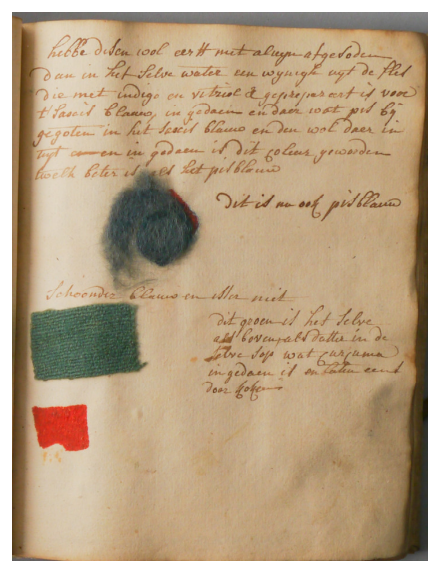 hebbe desen wol eerst met aluyn afgesoden
dan in het selve water een wynigh uyt de fles
die met indigo en vitriol & geprepareert is voor
t Saxis blauw, in gedaen en daer wat pis by
gegoten in het Saxis blauw en den wol daer in
uyt en in gedaen is dit coleur geworden
twelk beter is als het pisblauw
dit is nu ook pisblauw
Schoonder blauw en niet
dit groen is het selve
als boven, als dat in de
selve sop wat curcuma
in gedaen is en laten eens
door koken